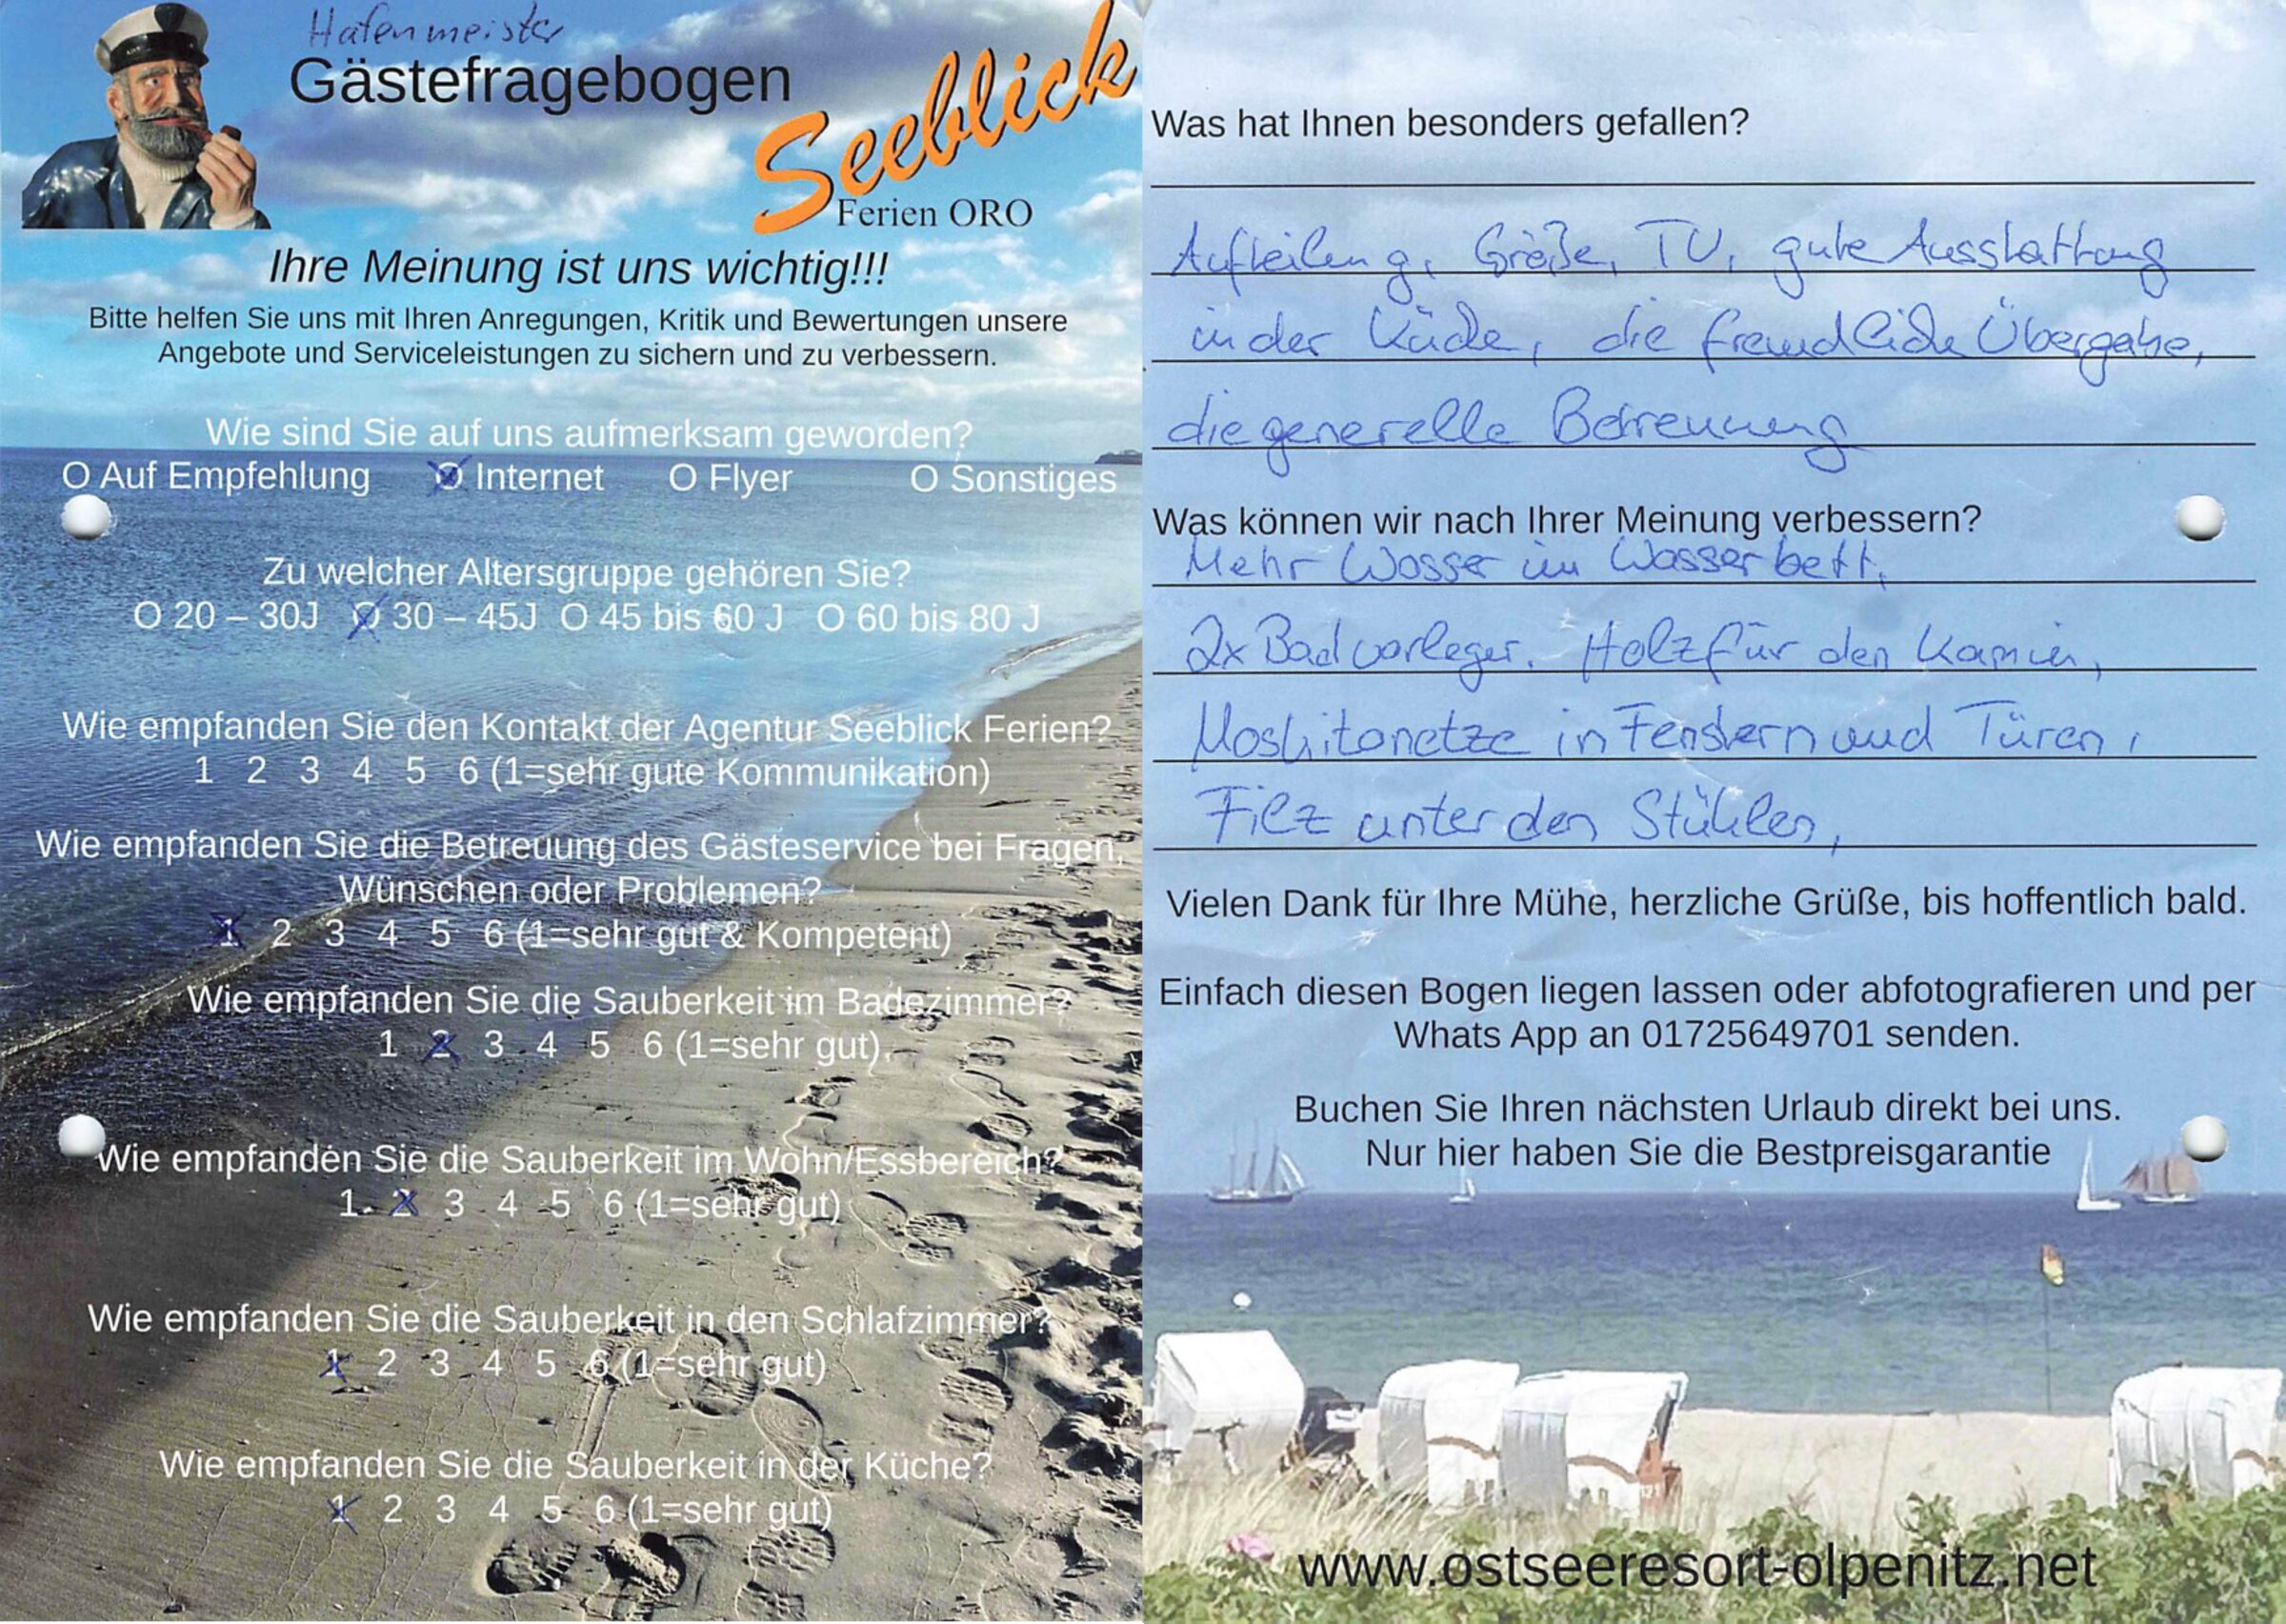 Hafenmeister
Gästefragebogen
Seeblick
Ferien ORO
Ihre Meinung ist uns wichtig!!!
Bitte helfen Sie uns mit Ihren Anregungen, Kritik und Bewertungen unsere
Angebote und Serviceleistungen zu sichern und zu verbessern.
Wie sind Sie auf uns aufmerksam geworden?
O Auf Empfehlung O Internet O Flyer O Sonstiges
Zu welcher Altersgruppe gehören Sie?
O 20 – 30J O 30 – 45J O 45 bis 60 J O 60 bis 80 J
Wie empfanden Sie den Kontakt der Agentur Seeblick Ferien?
1 2 3 4 5 6 (1=sehr gute Kommunikation)
Wie empfanden Sie die Betreuung des Gästeservice bei Fragen,
Wünschen oder Problemen?
1 2 3 4 5 6 (1=sehr gut & Kompetent)
Wie empfanden Sie die Sauberkeit im Badezimmer?
1 2 3 4 5 6 (1=sehr gut)
Wie empfanden Sie die Sauberkeit im Wohn/Essbereich?
1 2 3 4 5 6 (1=sehr gut)
Wie empfanden Sie die Sauberkeit in den Schlafzimmer?
1 2 3 4 5 6 (1=sehr gut)
Wie empfanden Sie die Sauberkeit in der Küche?
1 2 3 4 5 6 (1=sehr gut)
Was hat Ihnen besonders gefallen?
Aufteilung, Größe, TV, gute Ausstattung
in der Küche, die freundliche Übergabe,
die generelle Betreuung
Was können wir nach Ihrer Meinung verbessern?
Mehr Wasser im Wasserbett,
2x Badvorleger. Holz für den Kamin,
Moskitonetze in Fenstern und Türen,
Filz unter den Stühlen,
Vielen Dank für Ihre Mühe, herzliche Grüße, bis hoffentlich bald.
Einfach diesen Bogen liegen lassen oder abfotografieren und per
Whats App an 01725649701 senden.
Buchen Sie Ihren nächsten Urlaub direkt bei uns.
Nur hier haben Sie die Bestpreisgarantie
www.ostseeresort-olpenitz.net